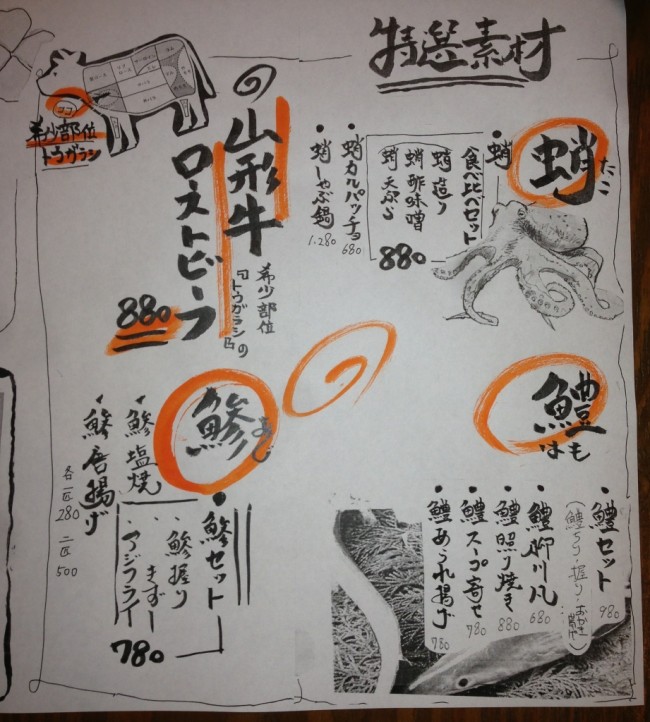 特選素材
蛸
たこ
・蛸食べ比べセット
蛸造り
蛸酢味噌
蛸天ぷら
880
・蛸カルパッチョ
680
・蛸しゃぶ鍋
1.280
の山形牛
ロストビーフ
希少部位
『トウガラシ』の
880
ココ
希少部位
トウガラシ
鱧
はも
・鱧セット
980
・鱧柳川風
680
・鱧照り焼き
880
・鱧スープ寄せ
780
・鱧あられ揚げ
780
鯵
あじ
・鯵セット
・鯵握り
・きずし
・アジフライ
780
・鯵塩焼
・鯵唐揚げ
各一匹280 二匹500